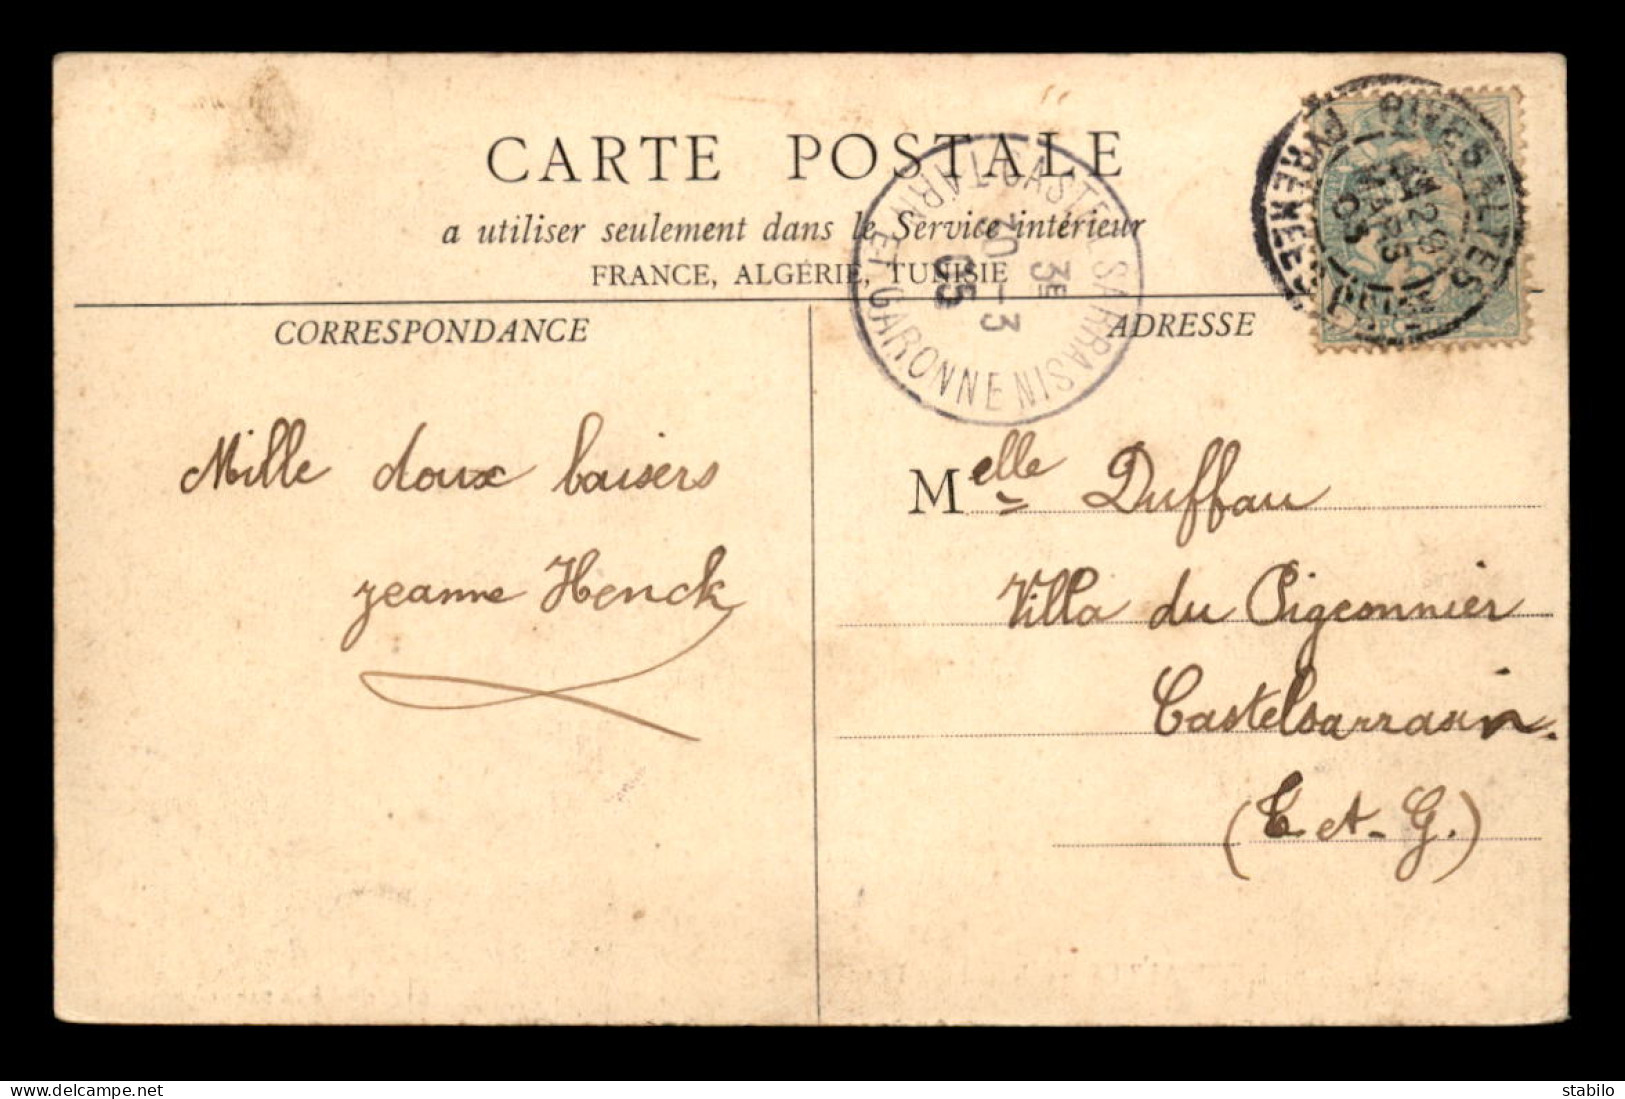 CARTE POSTALE
a utiliser seulement dans le Service intérieur
FRANCE, ALGÉRIE, TUNISIE
CORRESPONDANCE
ADRESSE
CASTEL SARRASIN
TARN ET GARONNE
3E
30 - 3
05
RIVESALTES
PYRENEES
29
MARS
05
Mille doux baisers
jeanne Henck
Melle Duffau
Villa du Pigeonnier
Castelsarrasin.
(T. et-G.)
stabilo